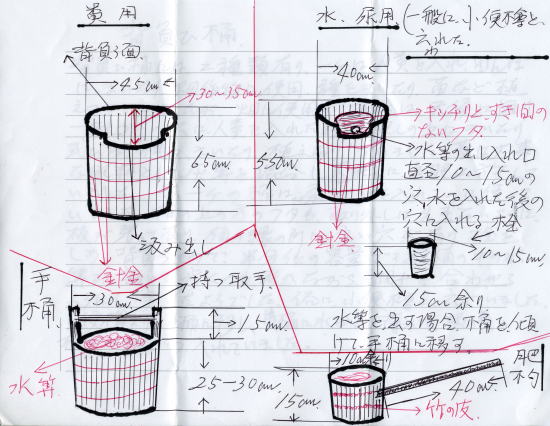 糞用
背負う面
45cm
30〜35cm
65cm
汲み出し
針金
水、尿用
(一般に、小便不等と、
云われた
40cm
55cm
キッチリと、すき間の
ないフタ
水等の出し入れ口
直径10〜15cmの
穴、水を入れた後の
穴に入れる 栓
針金
10〜15cm
15cm余り
水等を出す場合、桶を傾
けて、手桶に移す。
手桶
30cm
持つ取手
15cm
水等
25-30cm
肥杓
10cm
15cm
40cm
竹の皮